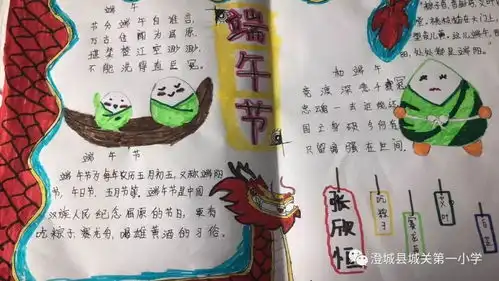 端午
节分端午自谁言,
万古传闻为屈原,
堪笑楚江空渺渺,
不能洗得直臣冤.
端午节
端午节为每年农历五月初五,又称端阳
节,午日节,五月节等.端午节是中国
汉族人民纪念屈原的节日,更有
吃粽子赛龙舟,喝雄黄酒的习俗.
端午节
堂,桃枝插在大门上
望麦儿黄,这儿端
阳,处处都是端阳.
和端午
竞渡深悲千载冤
忠魂一去讵能还
国亡身殒今何有
只留离骚在世间.
张欣恒
吃粽子
赛龙舟
艾叶
澄城县城关第一小学